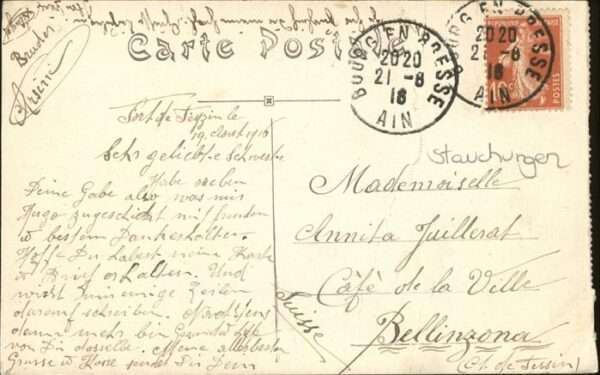 Carte Postale
BOURG EN BRESSE
2020
21 -8
18
AIN
BOURG EN BRESSE
2020
21 -8
18
AIN
10c
POSTES
Stauchungen
Bruder
Fort de
19 Aout 1918
Sehr geliebte Schwester
Habe soeben
Deine Gabe also was mir
Hugo zugeschickt mit Freuden
& bestem Dank erhalten.
Hoffe Du habest meine Karte
& Brief erhalten. Und
wirst mir einige Zeilen
darauf schreiben.
dann mehr bin Gesund &
von Dir dasselbe. Meine allerbesten
Grüsse & Küsse sendet Dir Dein
Mademoiselle
Annita Juillerat
Café de la Ville
Bellinzona
(Ct. de Tessin)
Suisse